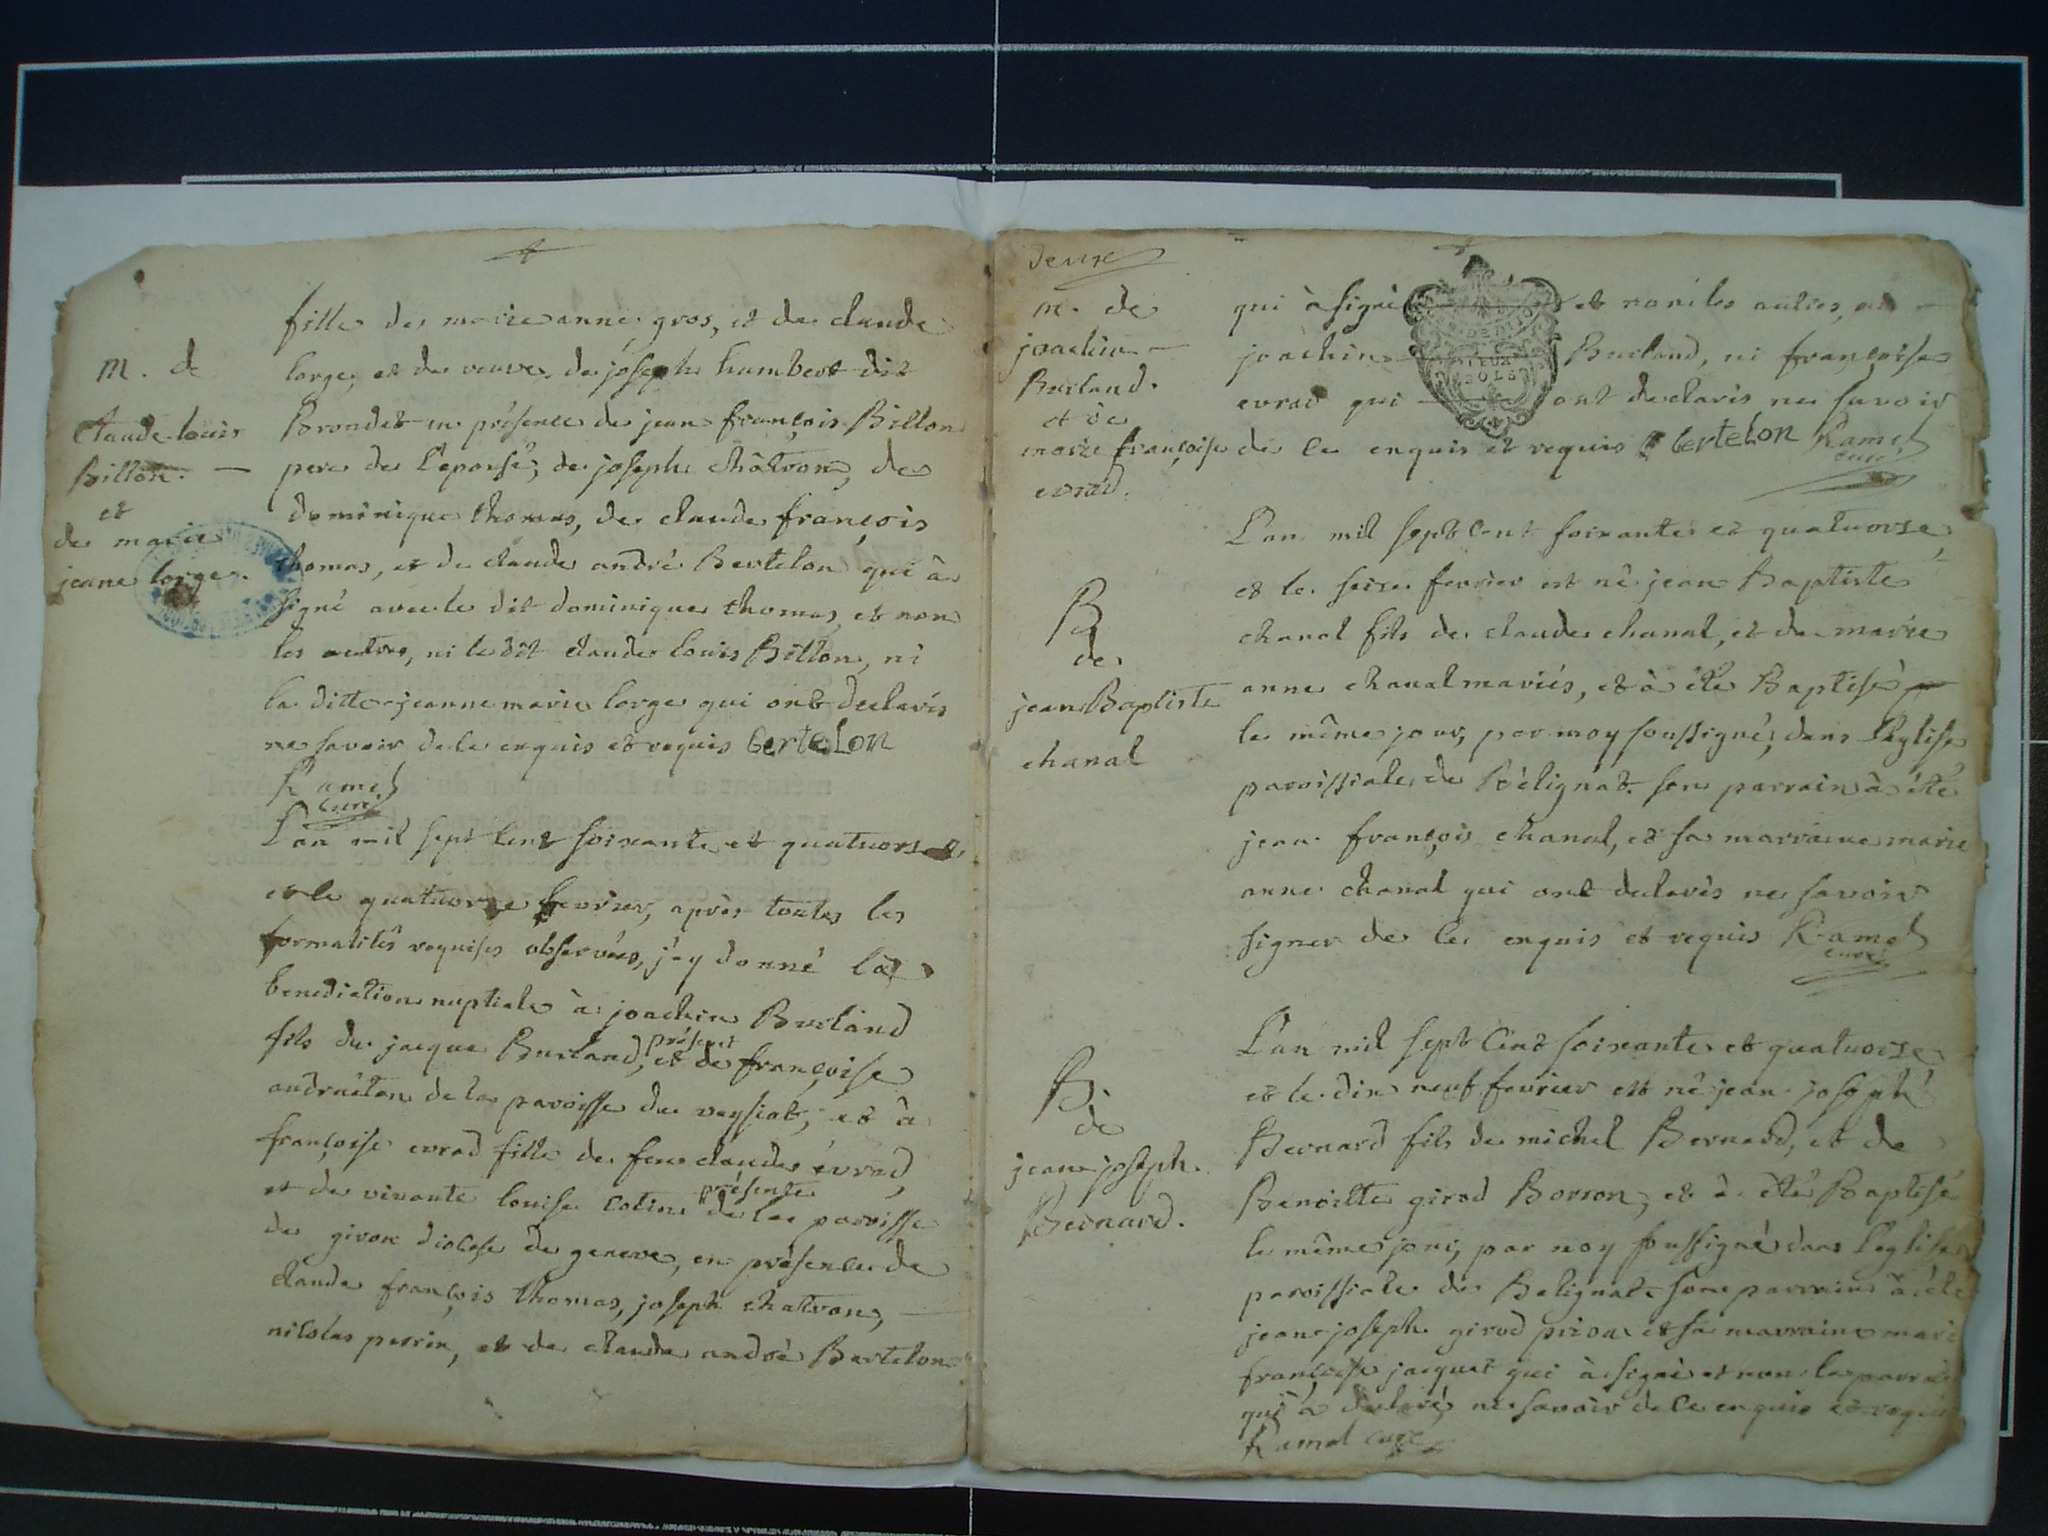 m. de
Claude Louis
Billon.
et
de marie
jeane lorge.
fille de marie anne gros, et de claude
lorge, et de veuve de joseph humbert dit
Brondet en présence de jean françois Billon
pere de l'epousé, de joseph châtron, de
dominique thomas, de claude françois
thomas, et de claude andré Bertelon qui à
signé avec le dit dominique thomas, et non
les autres, ni le dit claude louis Billon, ni
la ditte jeanne marie lorge qui ont declarés
ne savoir de ce enquis et requis bertelon
Ramel
curé
L'an mil sept cent soixante et quatuorze
et le quatuorze fevrier, après toutes les
formalités requises observées, j'ay donné la
benediction nuptiale à joachin Burland
fils de jacque Burland, présent et de françoise
andruiton de la paroisse de veysiat, et à
françoise evrad fille de feu claude évrad
et de vivante louise cotin présente de la paroisse
de giron diocese de geneve, en présence de
claude françois thomas, joseph chatron,
nicolas perrin, et de claude andrè Bertelon
deuxe
m. de
joachin
Burland.
et de
marie françoise
evrad.
qui à signé et non les autres, ni
joachin Burland, ni françoise
evrad qui ont declaris ne savoir
de ce enquis et requis bertelon Ramel
curé
DEUX
SOLS
B
de
jean Baptiste
chanal
L'an mil sept cent soixante et quatuorze,
et le seize fevrier est né jean Baptiste
chanal fils de claude chanal, et de marie
anne chanal mariés, et à été Baptisé
le même jour, par moy soussigné, dans l'eglise
paroissiale de Bélignat. son parrain à été
jean françois chanal, et sa marraine marie
anne chanal qui ont declarés ne savoir
signer de ce enquis et requis Ramel
curé
B.
de
jean joseph.
Bernard.
L'an mil sept cent soixante et quatuorze
et le dix neuf fevrier est né jean joseph
Bernard fils de michel Bernard, et de
Benoitte girod Borron, et à été Baptisé
le même jour, par moy soussigné dans l'eglise
paroissiale de Belignat son parrain à été
jean joseph girod prion et sa marraine marie
françoise jacquet qui à signé et non le parrain
qui à declaré ne savoir de ce enquis et requis
Ramel curé